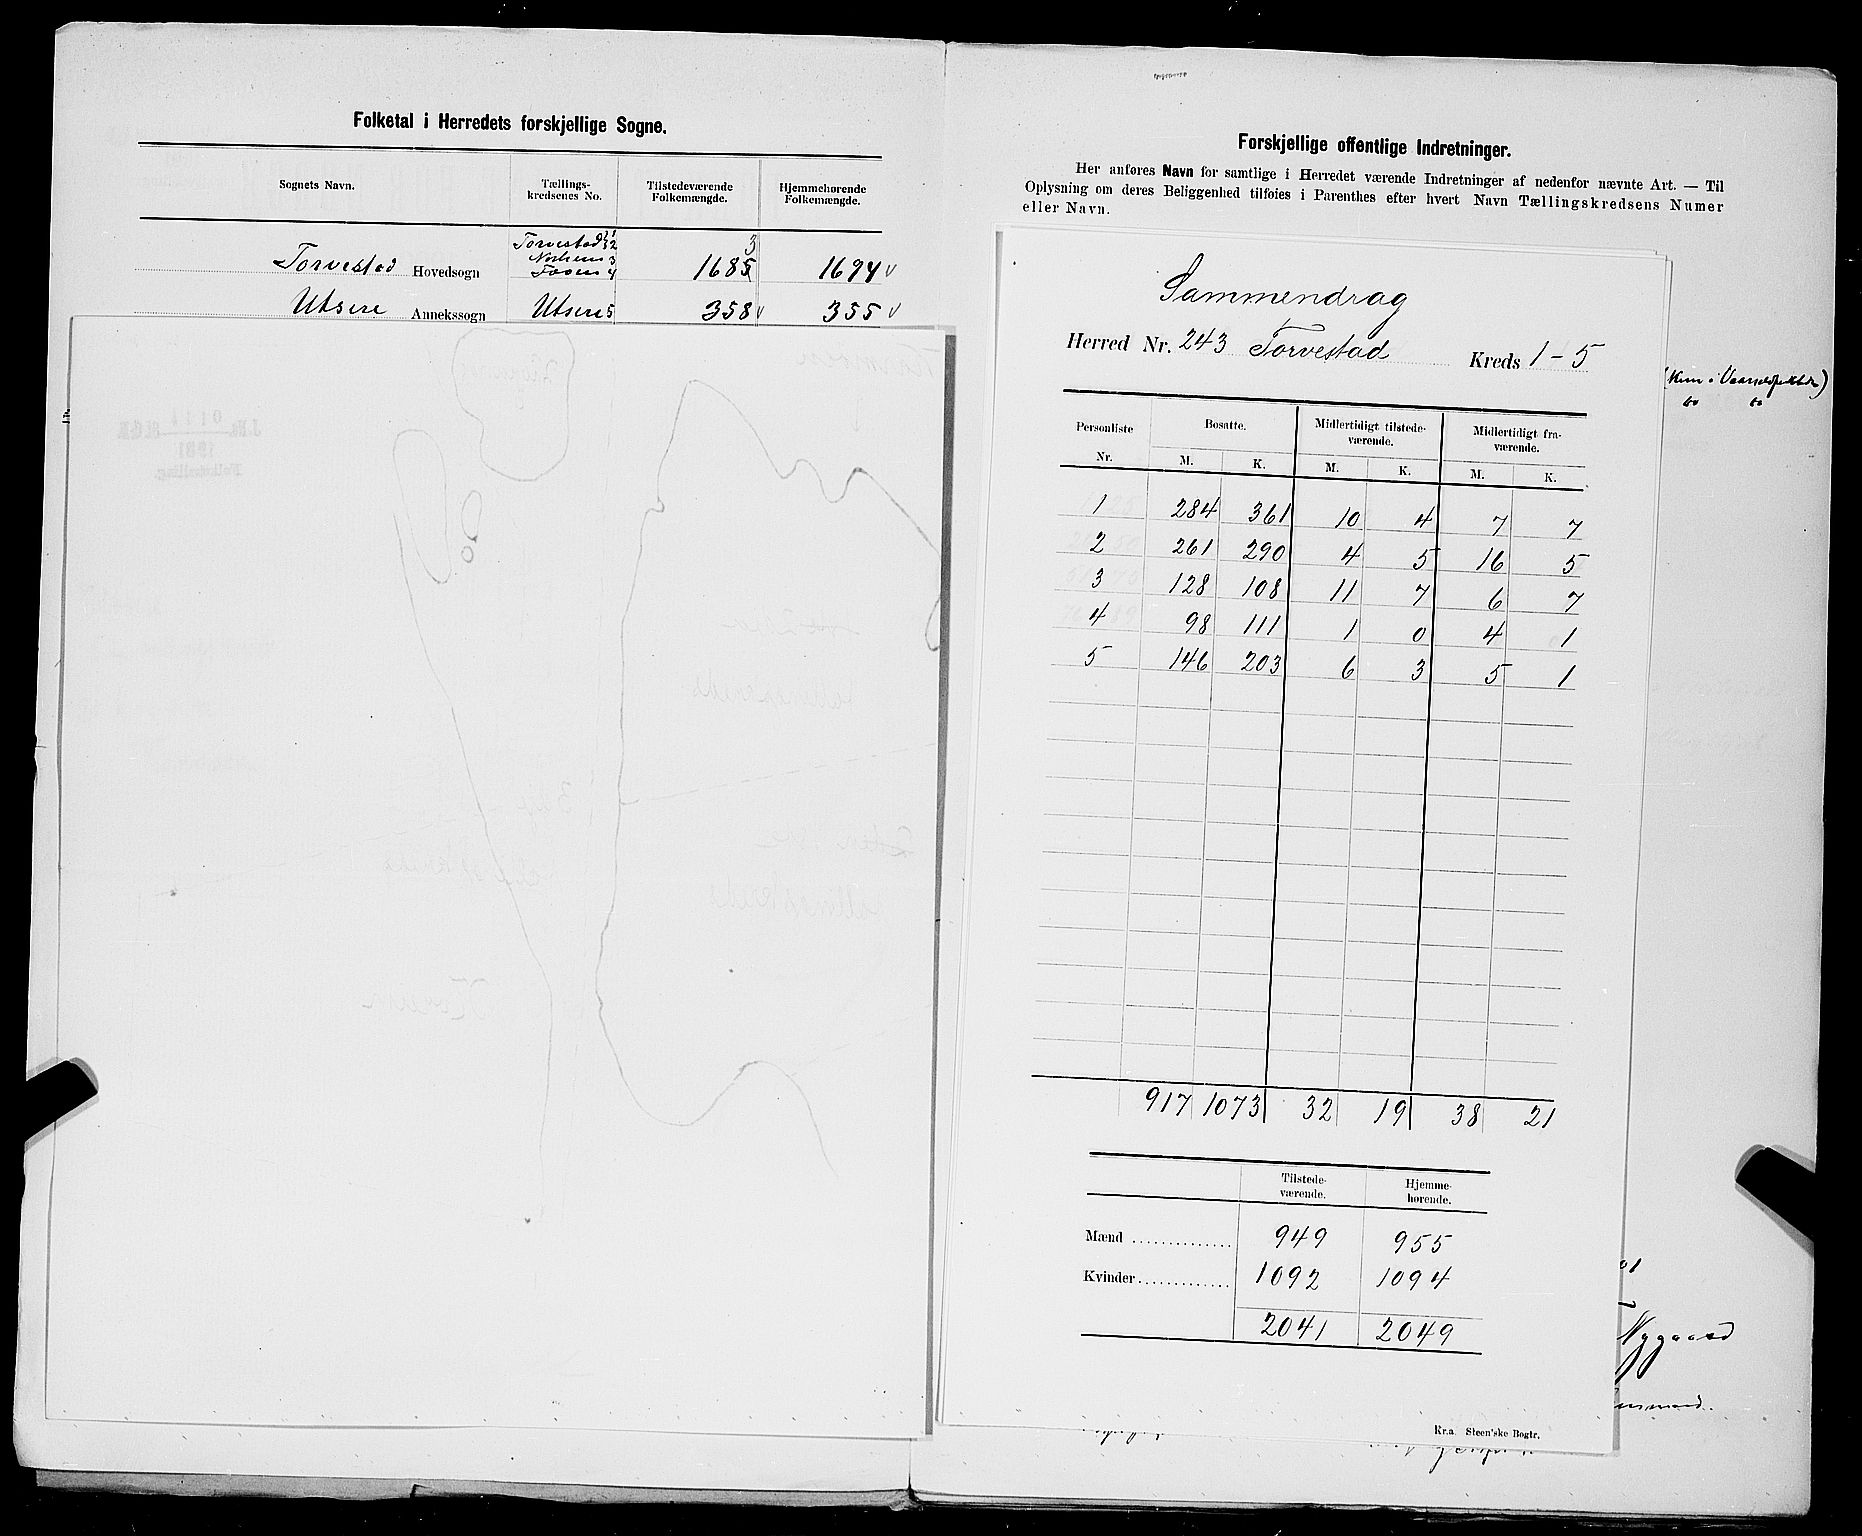 Folketal i Herredets forskjellige Sogne.
Sognets Navn.
Tællings-
kredsenes No.
Tilstedeværende
Folkemængde.
Hjemmehørende
Folkemængde.
Torvestad 1 2
3
Torvestad Hovedsogn 1685 1694 v
4
Utsire Annekssogn Utsire 5 358 v 355 v
Forskjellige offentlige Indretninger.
Her anføres Navn for samtlige i Herredet værende Indretninger af nedenfor nævnte Art. — Til
Oplysning om deres Beliggenhed tilføies i Parenthes efter hvert Navn Tællingskredsens Numer
eller Navn.
Sammendrag
Herred Nr. 243 Torvestad Kreds 1-5
Personliste
Nr.
Bosatte.
Midlertidigt tilstede-
værende.
Midlertidigt fra-
værende.
M. K. M. K. M. K.
1 284 361 10 4 7 7
2 261 290 4 5 16 5
3 128 108 11 7 6 7
4 98 111 1 0 4 1
5 146 203 6 3 5 1
917 1073 32 19 38 21
Tilstede-
værende.
Hjemme-
hørende.
Mænd 949 955
Kvinder 1092 1094
2041 2049
Kr.a. Steen'ske Bogtr.
Nygaard